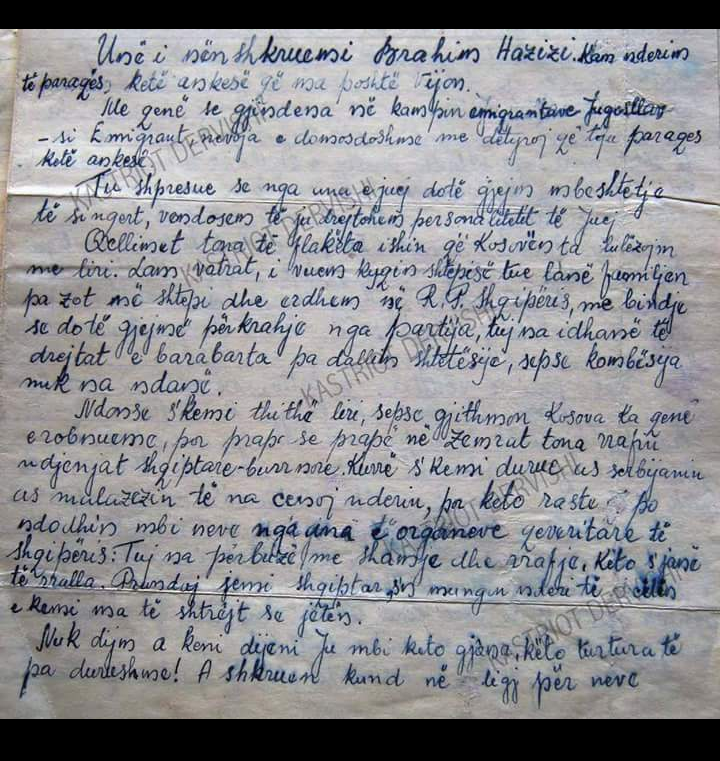 Unë i nënshkruemi Brahim Hazizi. Kam nderim
të paraqes ketë ankesë që ma poshtë vijon.
Me qenë se gjindena në kampin emigrantave Jugosllav
- si Emigraut, nevoja e domosdoshme me dëtyroj që t'ju paraqes
ketë ankesë
Tu shpresue se nga ana e juej dotë gjejm mbeshtetje
të singert, vendosem të ju drejtohem personalitetit të Juej
Qellimet tona të flakëta ishin që Kosovën ta lulëzojm
me liri. Lam vatrat, i vuem kyqin shtëpisë tue lanë familjen
pa zot në shtëpi dhe erdhem në R.P. Shqipëris, me bindje
se dotë gjejmë përkrahje nga partija, tuj na idhanë të
drejtat e barabarta pa dallim shtetësije, sepse kombësija
nuk na ndanë.
Ndonse s'kemi thithë liri, sepse gjithmon Kosova ka qenë
e robnueme, por prapë se prapë në Zemrat tona rrafin
ndjenjat shqiptare-burrnore. Kurrë s'kemi durue as serbijanin
as malazezin të na cenoj nderin, por keto raste po
ndodhin mbi neve nga ana e organeve qeveritare të
shqipëris: Tuj na përbuzë me shamje dhe rrafje. Keto s'janë
të rralla. Prandaj jemi shqiptar, sn mungon nderi të cilin
e kemi ma të shtrejt se jetën.
Nuk dijm a keni dijeni Ju mbi keto gjana, këto tortura të
pa durushme! A shkruen kund në ligj për neve
KASTRIOT DERVISHI
KASTRIOT DERVISHI
KASTRIOT DERVISHI
KASTRIOT DERVISHI
KASTRIOT DERVISHI